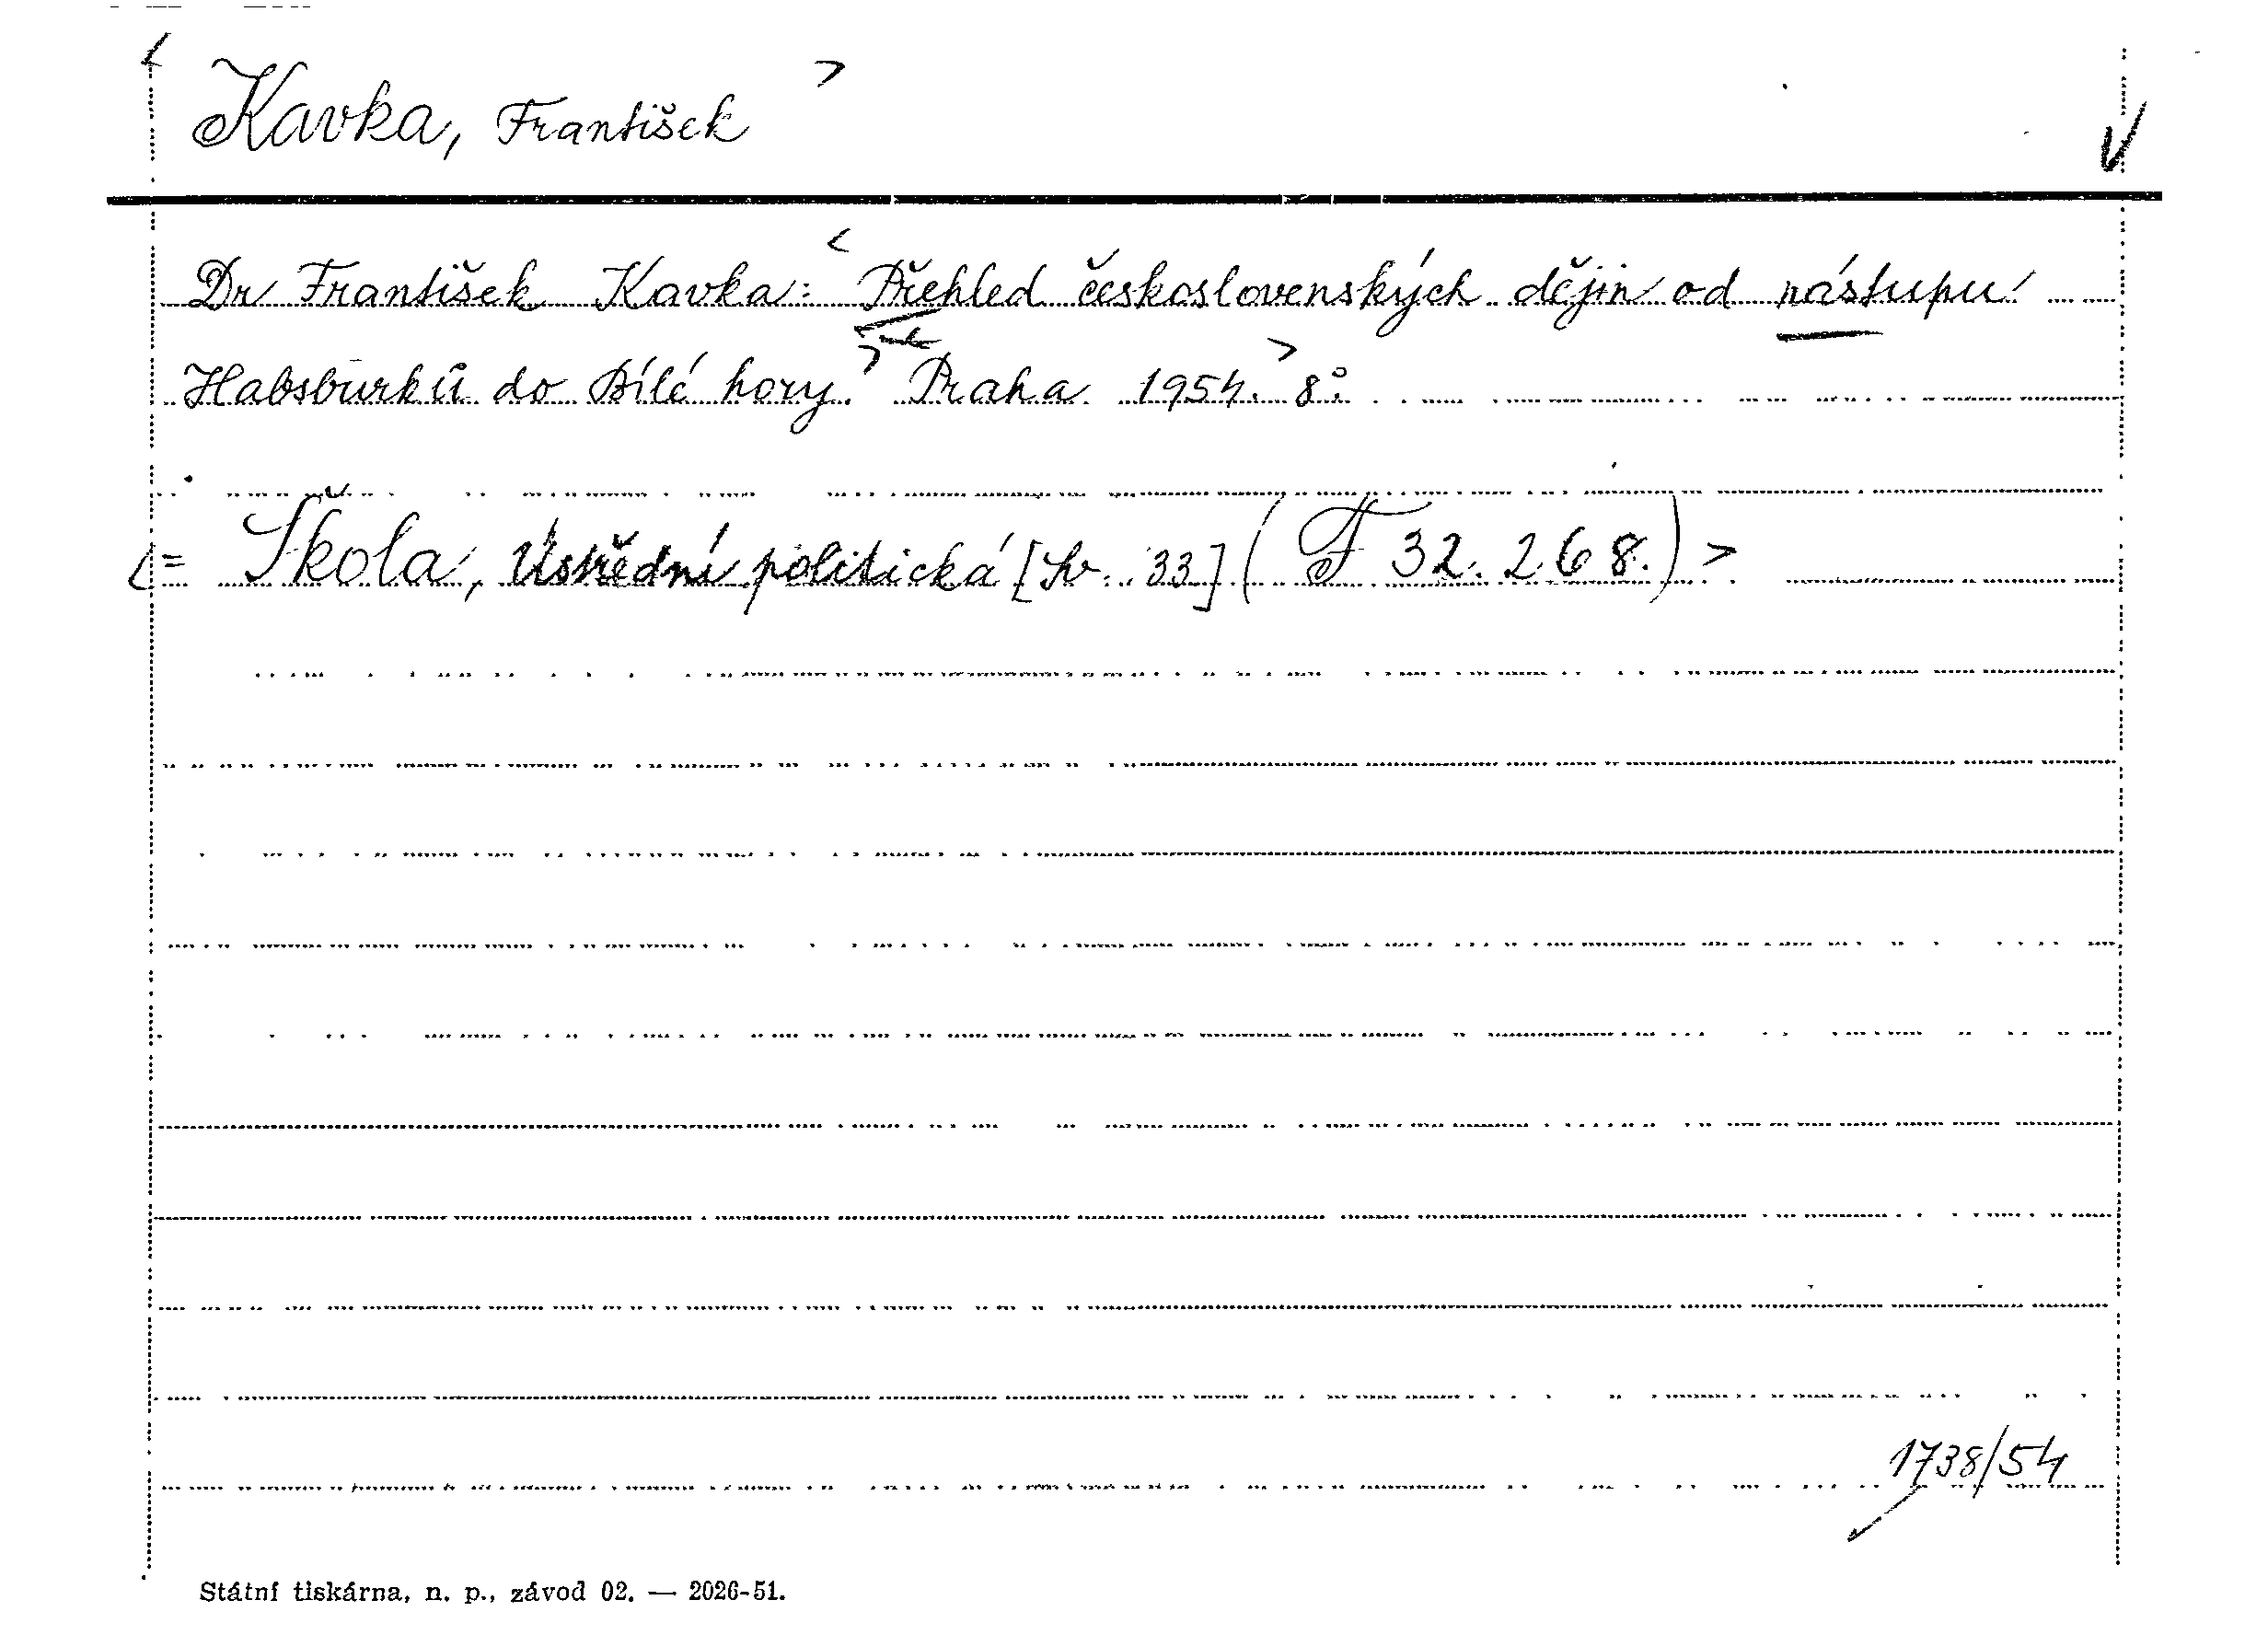 < Kavka, František >
Dr František Kavka: < Přehled československých dějin od nástupu
Habsburků do Bílé hory. > Praha 1954. > 8°.
< = Škola, Ústřední politická [Sv. 33] ( F 32.268.) >
1738/54
Státní tiskárna, n. p., závod 02. — 2026-51.